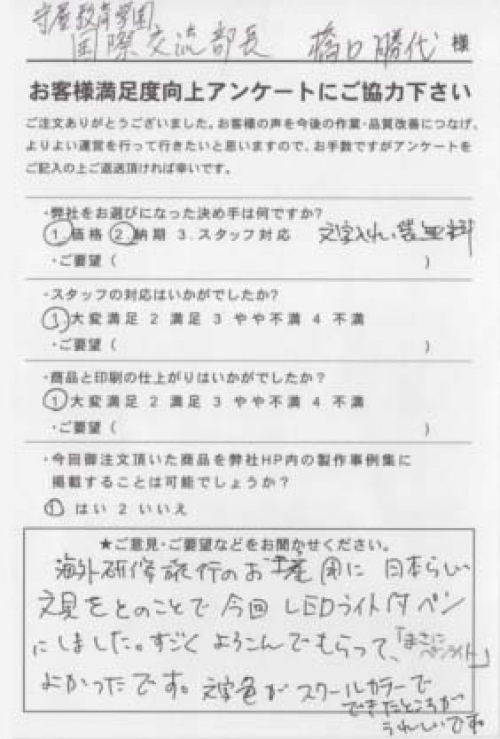 守屋教育学園
国際交流部長 橋口勝代 様
お客様満足度向上アンケートにご協力下さい
ご注文ありがとうございました。お客様の声を今後の作業・品質改善につなげ、
よりよい運営を行って行きたいと思いますので、お手数ですがアンケートを
ご記入の上ご返送頂ければ幸いです。
・弊社をお選びになった決め手は何ですか?
1.価格 2.納期 3.スタッフ対応 文字入れ 無料
・ご要望( )
・スタッフの対応はいかがでしたか?
1 大変満足 2 満足 3 やや不満 4 不満
・ご要望( )
・商品と印刷の仕上がりはいかがでしたか?
1 大変満足 2 満足 3 やや不満 4 不満
・ご要望( )
・今回御注文頂いた商品を弊社HP内の製作事例集に
掲載することは可能でしょうか?
1 はい 2 いいえ
★ご意見・ご要望などをお聞かせください。
海外研修旅行のお土産用に 日本らしい
文具をとのことで 今回 LEDライト付ペン
にしました。すごく よろこんでもらって、「まさに
ペンライト」
よかったです。文字色が スクールカラーで
できたところが
うれしいです。